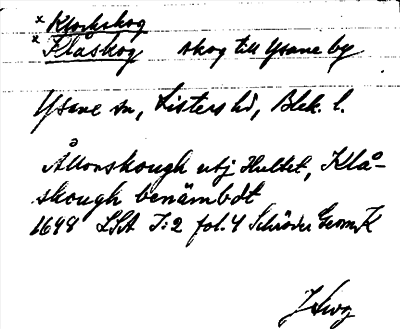 × Klockskog
× Flåskog skog till Ysane by
Ysane sn, Listers hd, Blek. l.
Ållonskough utj Hultet, Klå-
skough benämbdt
1698 LSA I:2 fol. 4 Schröder Geom. K